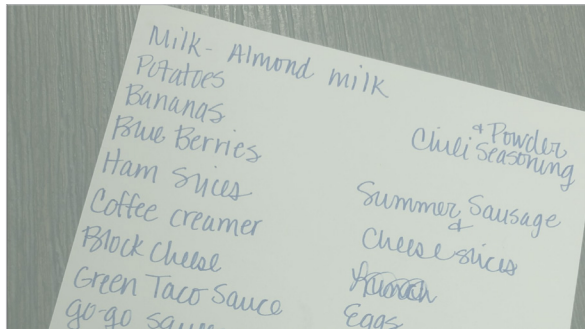 Milk - Almond milk
Potatoes
Bananas
Blue Berries
Ham Slices
Coffee creamer
Block Cheese
Green Taco Sauce
go-go sauce
& Powder
Chili Seasoning
Summer Sausage
&
Cheese slices
Eggs